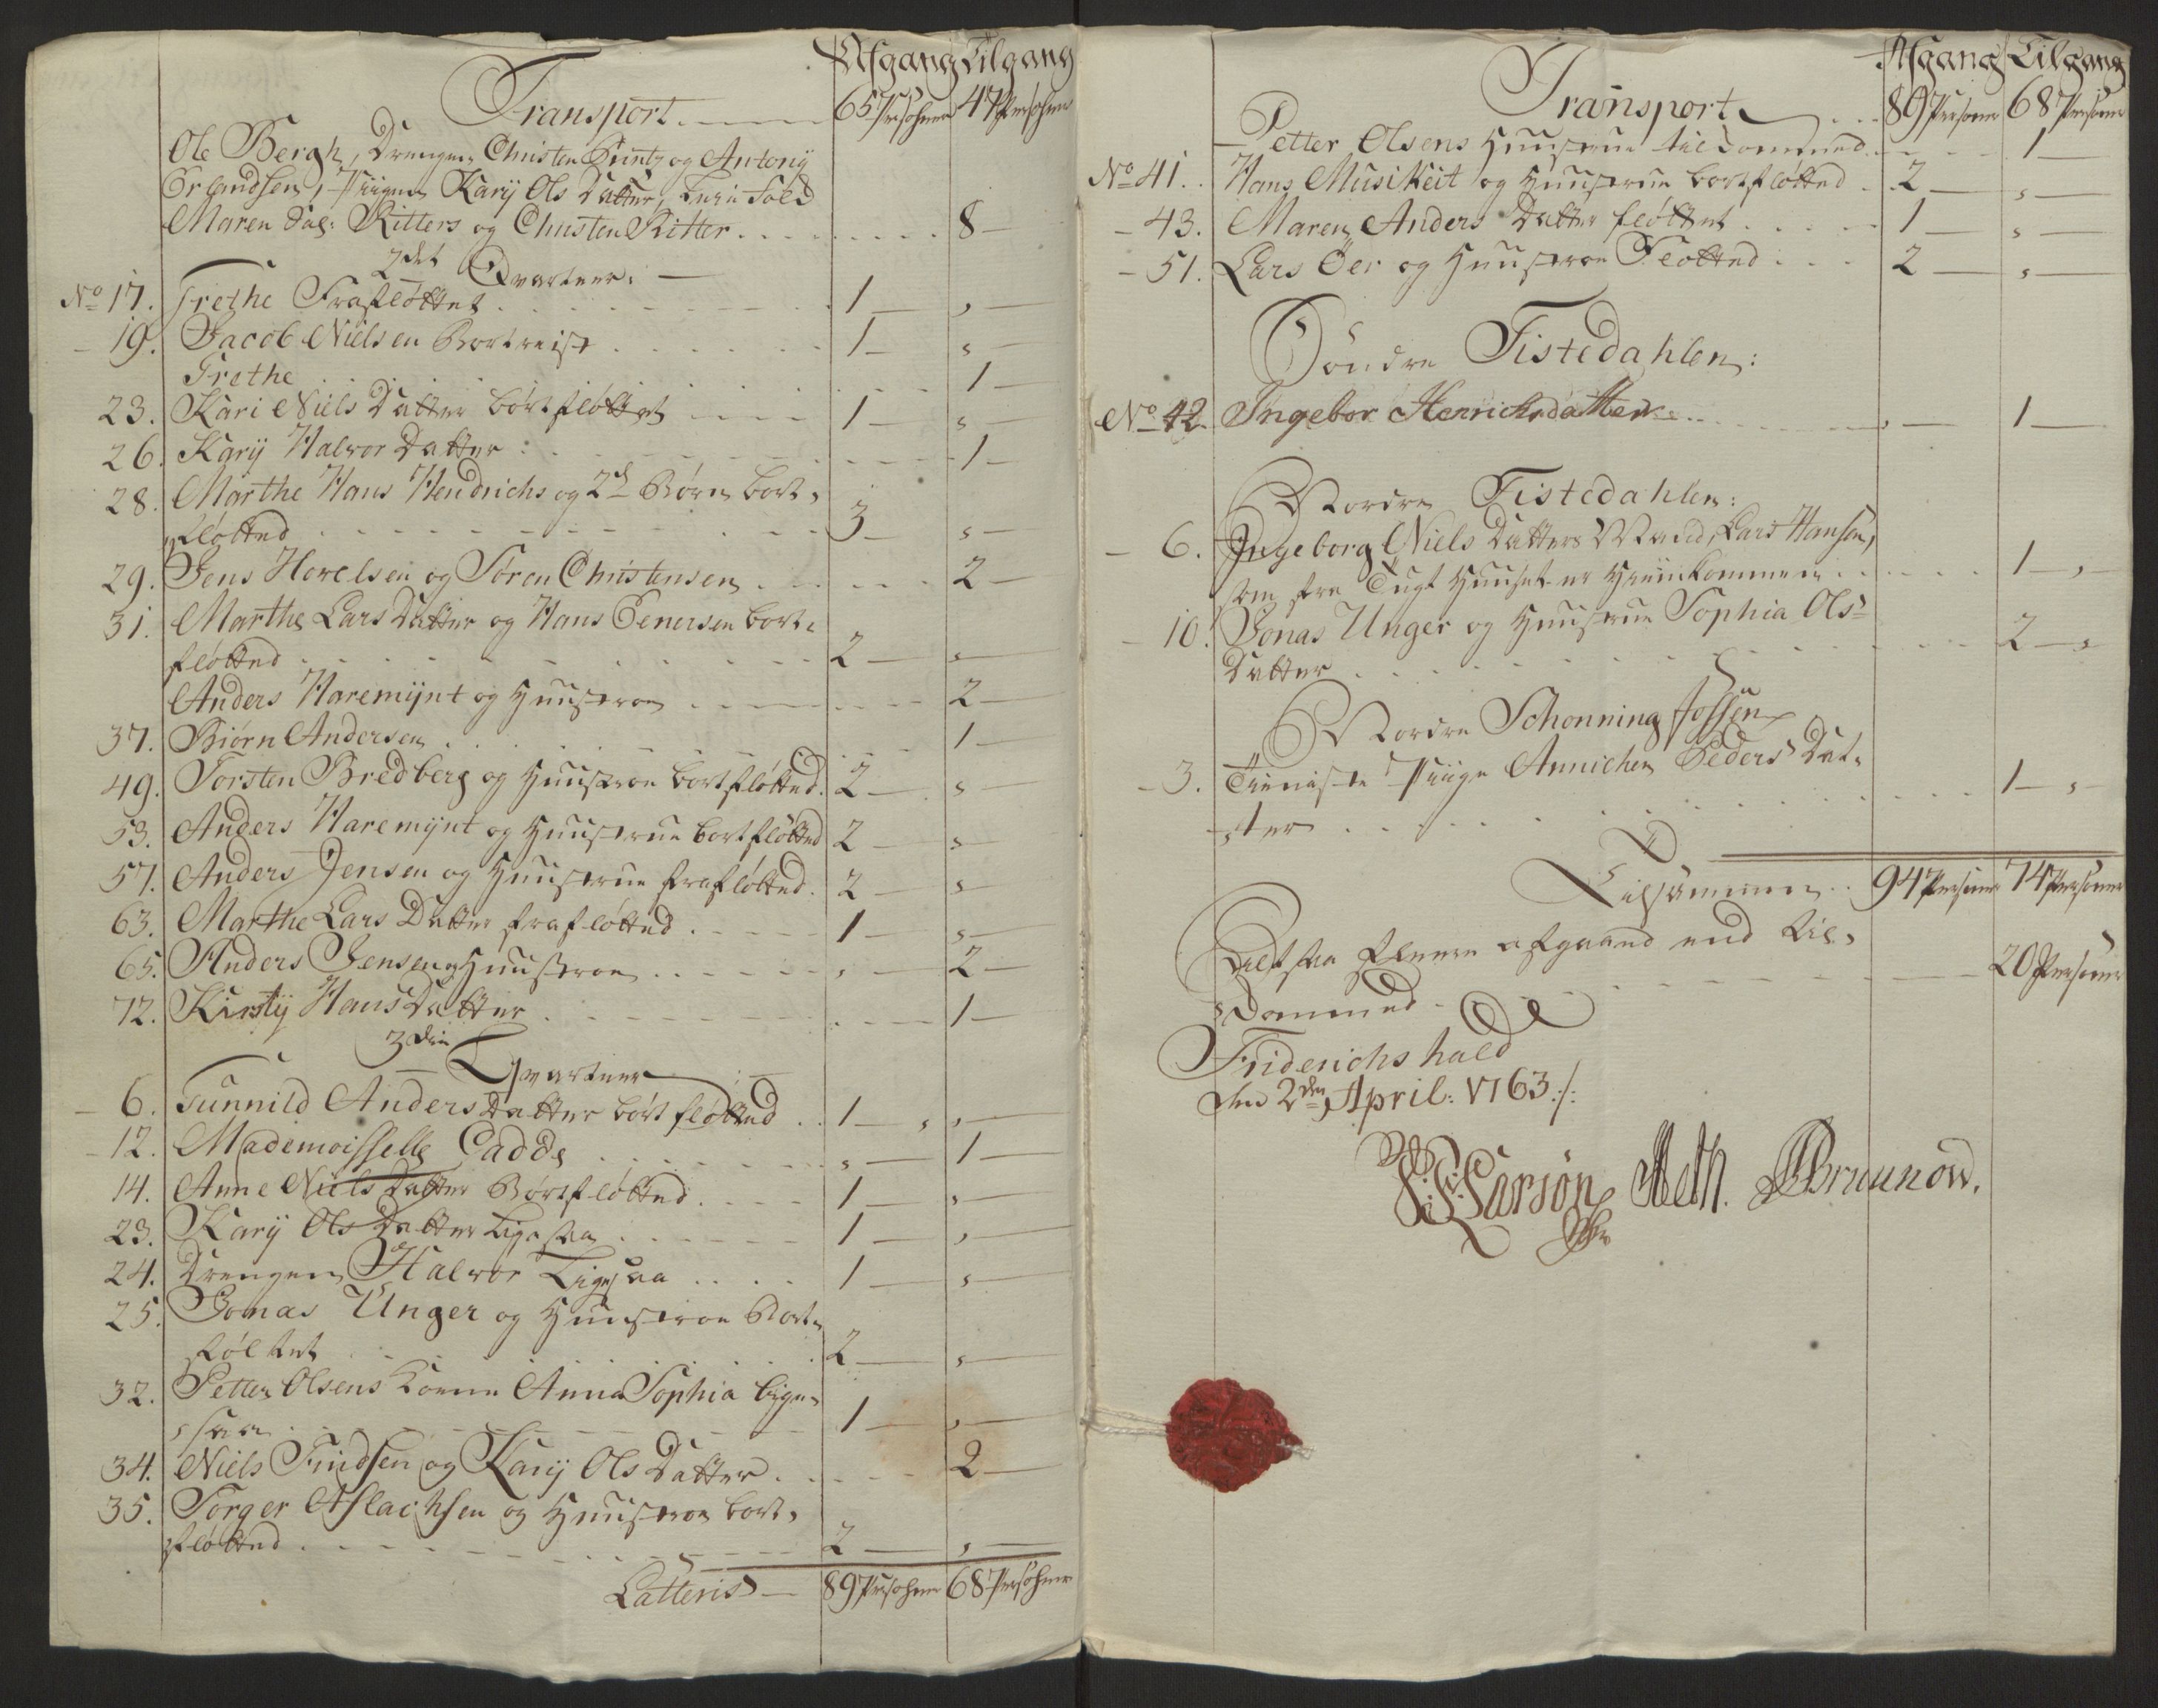 Afgang Tilgang
Transport 65 Persohner 47 Persohner
Ole Bergh, Drengene Christen Suntz og Antony
Erlandsen, Piigen Kary Ols Datter,
Maren Ritters og Christen Ritter 8
2det Qvarteer
No 17. Grethe Frafløttet 1 "
19. Jacob Nielsen Bortreist 1 "
Grethe 1
23. Kari Niels Datter bortfløttet 1 "
26. Kary Halvor Datter 1
28. Marthe Hans Hendrichs og 2de Børn bort-
fløtted 3 "
29. Jens Hovelsen og Søren Christensen 2
31. Marthe Lars Datter og Hans Eenersen bort-
fløtted 2 "
Anders Haremynt og Huustroe 2
37. Biørn Andersen 1
49. Torsten Bredberg og Huustroe bortfløtted 2 "
53. Anders Haremynt og Huustrue bortfløtted 2 "
57. Anders Jensen og Huustrue frafløtted 2 "
63. Marthe Lars Datter frafløtted 1 "
65. Anders Jensen og Huustroe " 2
72. Kirsty Hans Datter 1
3die Qvarteer
6. Gunnild Anders Datter bortfløtted 1 "
12. Mademoisselle Cadde " 1
14. Anne Niels Datter Bortfløtted 1 "
23. Kary Ols Datter Ligesaa 1 "
24. Drengen Halvor Ligesaa 1 "
25. Jonas Unger og Huustroe Bort-
fløttet 2 "
32. Petter Olsens Konne Anna Sophia lige-
saa 1 "
34. Niels Findsen og Kary Ols Datter 2
35. Torger Aslachsen og Huustroe bort-
fløtted 2 "
Latteris 89 Persohner 68 Persohner
Afgang Tilgang
Transport 89 Personer 68 Personer
Petter Olsens Huustrue tilkommed 1
No 41. Hans Musikeit og Huustrue bortfløtted 2 "
43. Maren Anders Datter fløttet 1 "
51. Lars Öer og Huustroe Fløtted 2 "
Söndre Tistedahlen:
No 42 Ingebor Henrichsdatter " 1
Nordre Tistedahlen:
6. Ingeborg Niels Datters Mand, Lars Hansen,
som fra Tugt Huuset er Hiemkommen 1 "
10. Jonas Unger og Huustrue Sophia Ols
Datter 2 "
Nordre Schonning fossen
3. Tieniste Piige Annichen Peders Dat-
ter 1 "
Tilsammen 94 Persuner 74 Persuner
Altsaa fleere afgaaed end til-
kommed 20 Persuner
Friderichshald
den 2den April: 1763./.
Larsön Aeth. Bruunow.